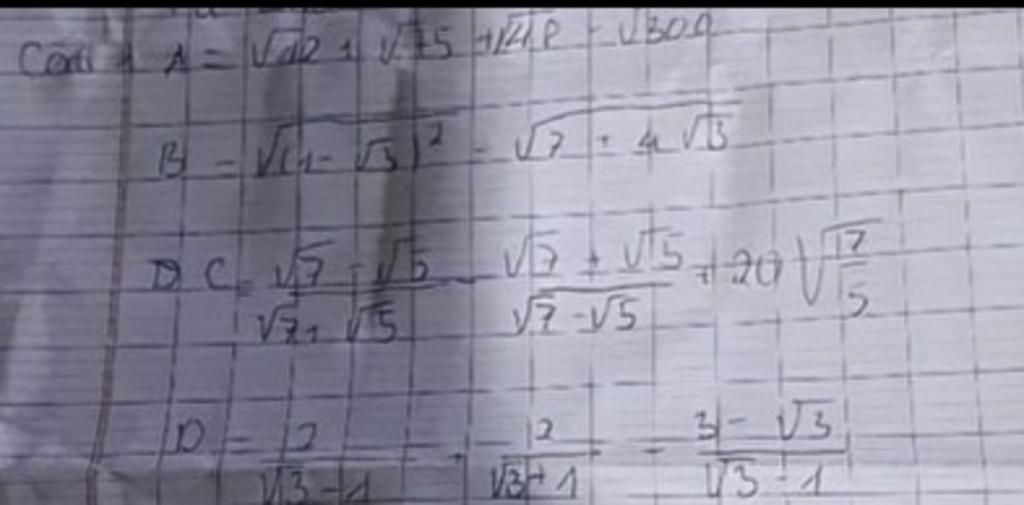 A = √12 + √75 + √48 - √300
B = √(1 - √3)² - √7 + 4√3
C = (√7 - √5)/(√7 + √5) - (√7 + √5)/(√7 - √5) + 20√(7/5)
D = 2/(√3 - 1) - 2/(√3 + 1) - (3 - √3)/(√3 - 1)